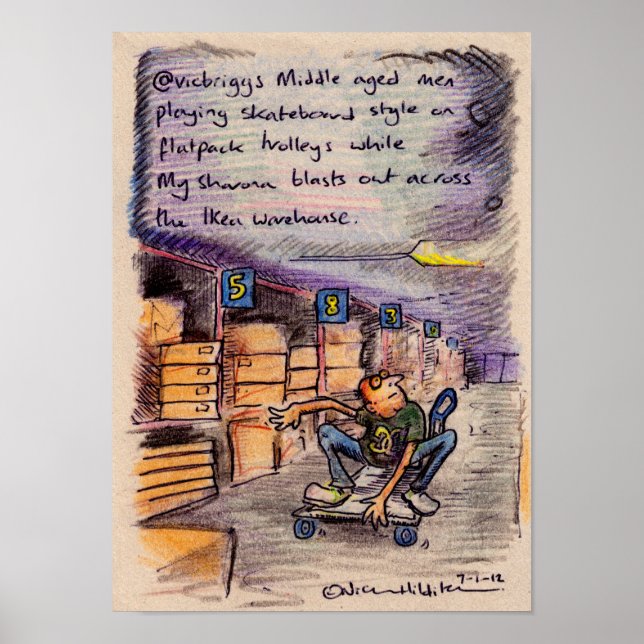 @vicbriggs Middle aged men
playing skateboard style on
flatpack trolleys while
My sharona blasts out across
the Ikea warehouse.
5
8
3
7-1-12